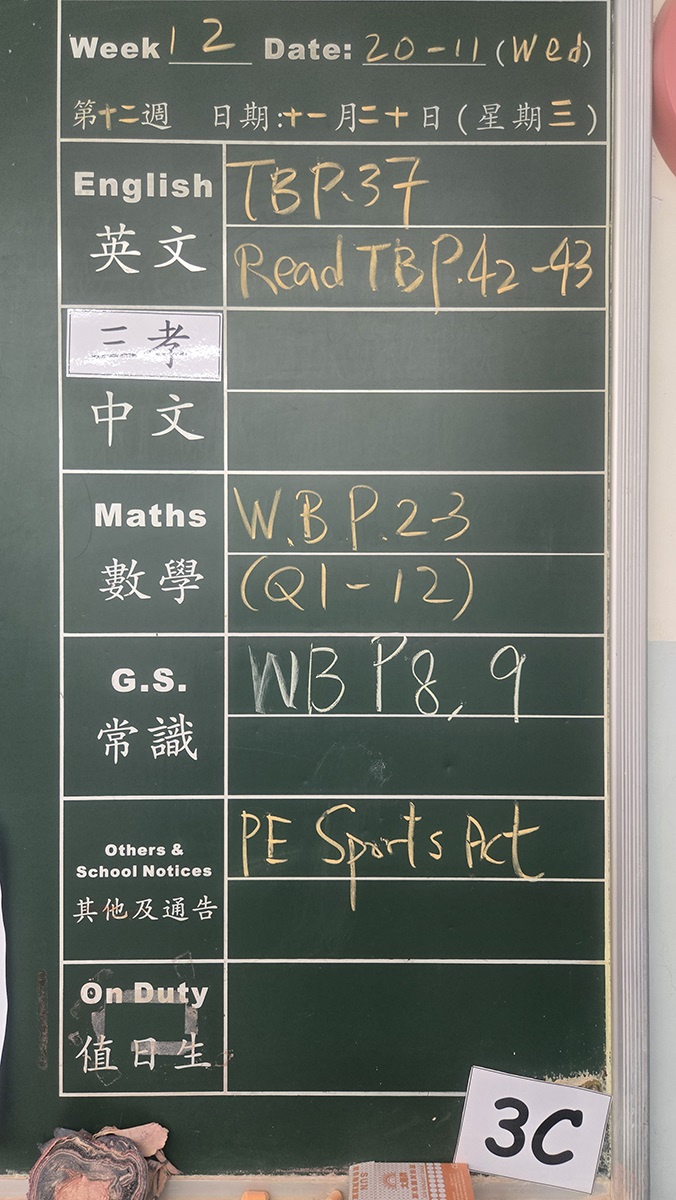 Week 12 Date: 20-11 (Wed)
第十二週 日期:十一月二十日(星期三)
English
英文
TBP.37
Read TBP.42-43
三考
中文
Maths
數學
W.B P.2-3
(Q1-12)
G.S.
常識
WB P8, 9
Others &
School Notices
其他及通告
PE Sports Act
On Duty
值日生
3C
SUN